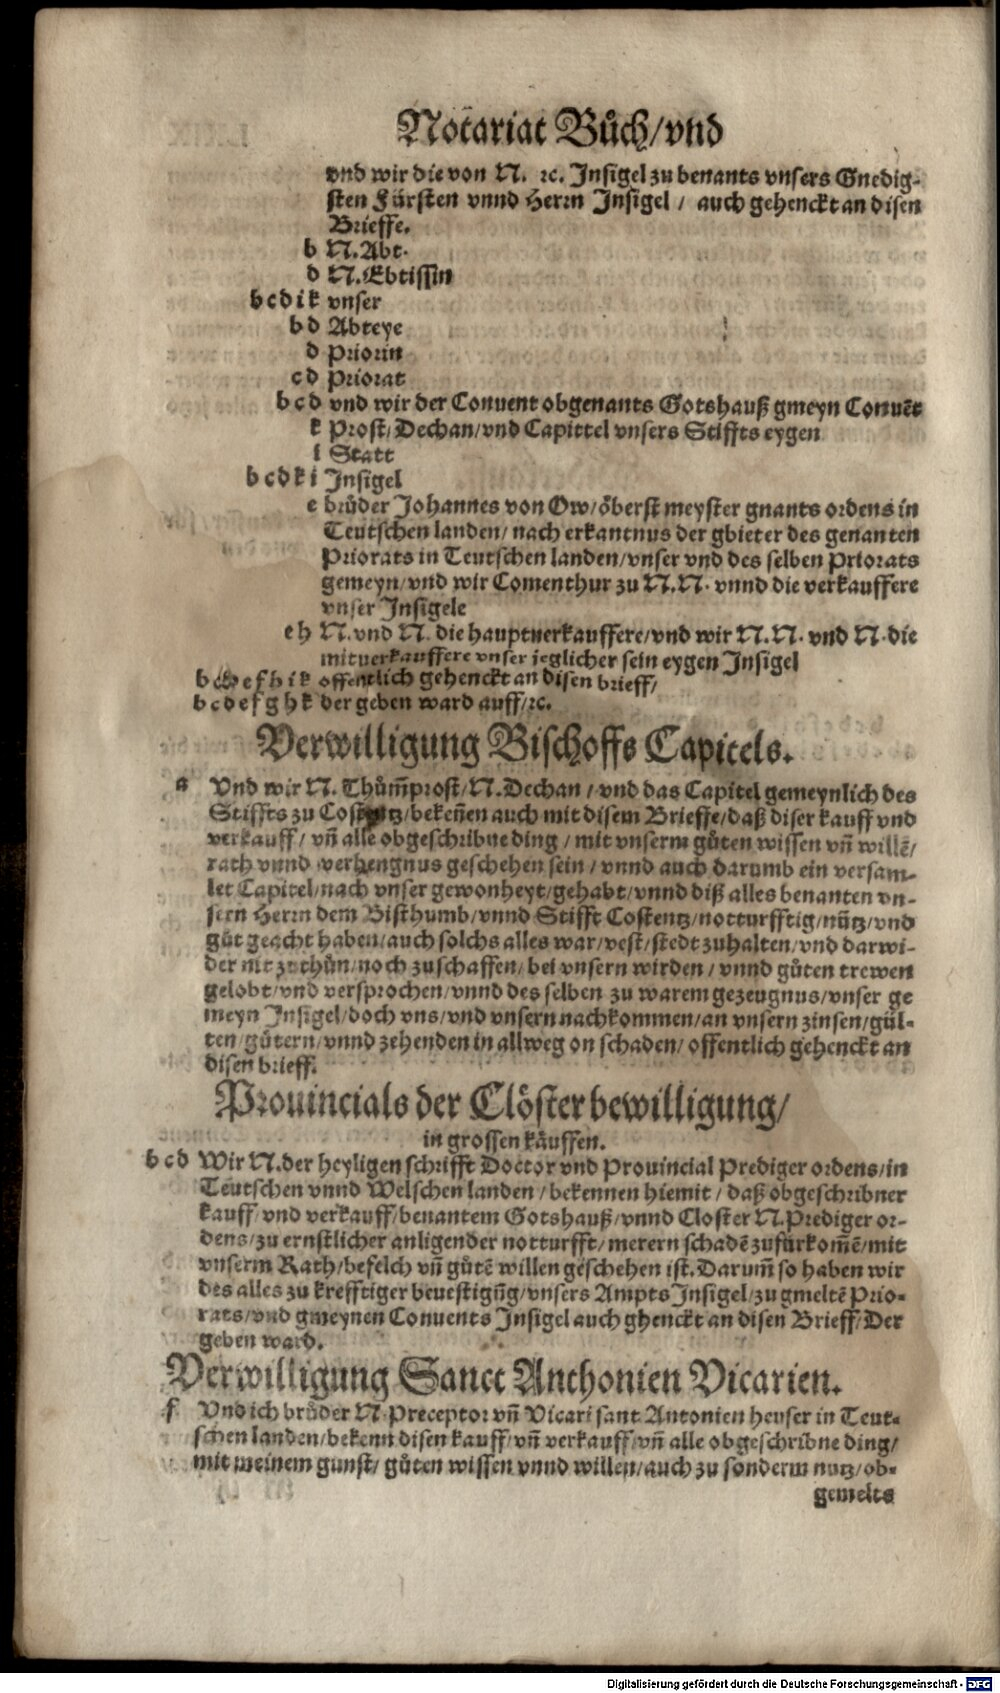 Notariat Buͦch/vnd
vnd wir die von N. ꝛc. Insigel zu benants vnsers Gnedig-
sten Fürsten vnnd Herrn Insigel / auch gehenckt an disen
Brieffe.
b N. Abt.
d N. Ebtissin
b c d i k vnser
b d Abteye
d Priorin
c d Priorat
b c d vnd wir der Conuent obgenants Gotshauß gmeyn Conuēt
k Prost/Dechan/vnd Capittel vnsers Stiffts eygen
i Statt
b c d k i Insigel
e bruͦder Johannes von Ow/öberst meyster gnants ordens in
Teutschen landen/ nach erkantnus der gbieter des genanten
Priorats in Teutschen landen/vnser vnd des selben Priorats
gemeyn/vnd wir Comenthur zu N.N. vnnd die verkauffere
vnser Insigele
e h N. vnd N. die hauptuerkauffere/vnd wir N.N. vnd N. die
mituerkauffere vnser jeglicher sein eygen Insigel
b c d e f h i k offentlich gehenckt an disen brieff/
b c d e f g h k der geben ward auff/ꝛc.
Verwilligung Bischoffs Capitels.
a Vnd wir N. Thuͦm̄prost/N. Dechan / vnd das Capitel gemeynlich des
Stiffts zu Costentz/bekeñen auch mit disem Brieffe/daß diser kauff vnd
verkauff/ vñ alle obgeschribne ding / mit vnserm guͦten wissen vñ willē/
rath vnnd verhengnus geschehen sein / vnnd auch darumb ein versam-
let Capitel/nach vnser gewonheyt/gehabt/vnnd diß alles benanten vn-
sern Herrn dem Bisthumb/vnnd Stifft Costentz/notturfftig/nütz/vnd
guͦt geacht haben/auch solchs alles war/vest/stedt zuhalten/vnd darwi-
der nit zethuͦn/noch zuschaffen/ bei vnsern wirden / vnnd guͦten trewen
gelobt/vnd versprochen/vnnd des selben zu warem gezeugnus/vnser ge
meyn Insigel/doch vns/vnd vnsern nachkommen/an vnsern zinsen/gül-
ten/guͤtern/vnnd zehenden in allweg on schaden/ offentlich gehenckt an
disen brieff.
Prouincials der Clöster bewilligung/
in grossen käuffen.
b c d Wir N. der heyligen schrifft Doctor vnd Prouincial Prediger ordens/in
Teutschen vnnd Welschen landen / bekennen hiemit / daß obgeschribner
kauff/vnd verkauff/benantem Gotshauß/vnnd Closter N. Prediger or-
dens/zu ernstlicher anligender notturfft/ merern schadē zufürkom̄ē/mit
vnserm Rath/befelch vñ guͦtē willen geschehen ist. Darum̄ so haben wir
des alles zu krefftiger beuestigūg/vnsers Ampts Insigel/zu gmeltē Prio-
rats/vnd gmeynen Conuents Insigel auch ghenckt an disen Brieff/Der
geben ward.
Verwilligung Sanct Anthonien Vicarien.
f Vnd ich bruͦder N. Preceptor vñ Vicari sant Antonien heuser in Teut-
schen landen/bekenn disen kauff/vñ verkauff/vñ alle obgeschribne ding/
mit meinem gunst/ guͦten wissen vnnd willen/auch zu sonderm nutz/ob-
gemelts
Digitalisierung gefördert durch die Deutsche Forschungsgemeinschaft - DFG